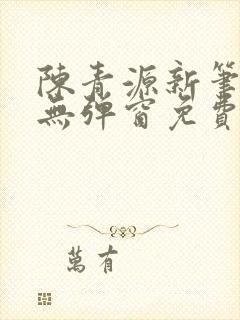 陳青源新筆
無彈窗免費
萬有